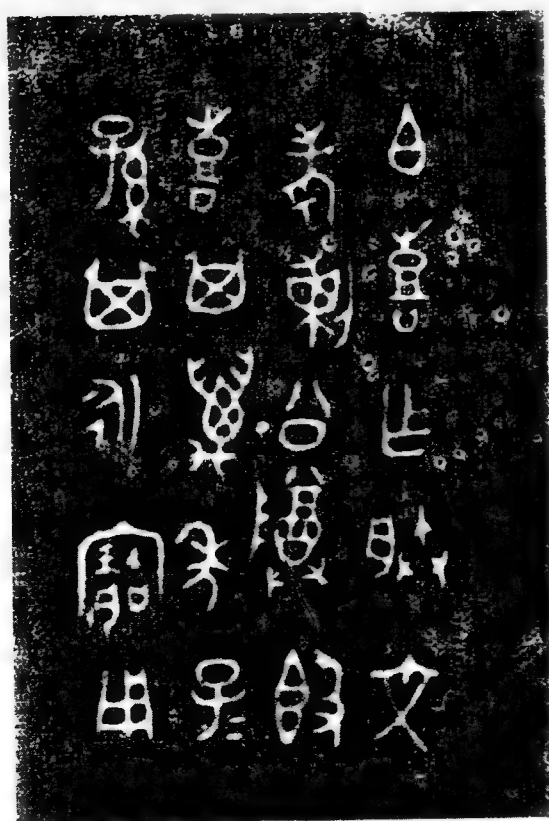 白喜乍朕文
考剌公尊簋
喜其萬年子=
孫其永寶用